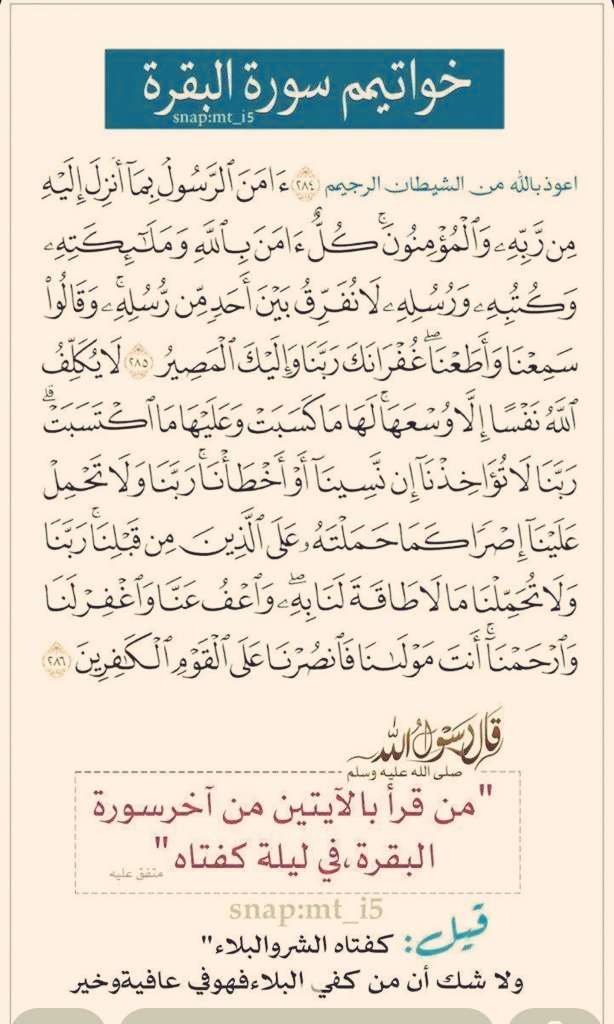 خواتيمم سورة البقرة
snap:mt_i5
اعوذ بالله من الشيطان الرجيمم ﴿٢٨٤﴾ ءَامَنَ ٱلرَّسُولُ بِمَآ أُنزِلَ إِلَيْهِ
مِن رَّبِّهِۦ وَٱلْمُؤْمِنُونَۚ كُلٌّ ءَامَنَ بِٱللَّهِ وَمَلَٰٓئِكَتِهِۦ
وَكُتُبِهِۦ وَرُسُلِهِۦ لَا نُفَرِّقُ بَيْنَ أَحَدٍ مِّن رُّسُلِهِۦۚ وَقَالُوا۟
سَمِعْنَا وَأَطَعْنَاۖ غُفْرَانَكَ رَبَّنَا وَإِلَيْكَ ٱلْمَصِيرُ ﴿٢٨٥﴾ لَا يُكَلِّفُ
ٱللَّهُ نَفْسًا إِلَّا وُسْعَهَاۚ لَهَا مَا كَسَبَتْ وَعَلَيْهَا مَا ٱكْتَسَبَتْۗ
رَبَّنَا لَا تُؤَاخِذْنَآ إِن نَّسِينَآ أَوْ أَخْطَأْنَاۚ رَبَّنَا وَلَا تَحْمِلْ
عَلَيْنَآ إِصْرًا كَمَا حَمَلْتَهُۥ عَلَى ٱلَّذِينَ مِن قَبْلِنَاۚ رَبَّنَا
وَلَا تُحَمِّلْنَا مَا لَا طَاقَةَ لَنَا بِهِۦۖ وَٱعْفُ عَنَّا وَٱغْفِرْ لَنَا
وَٱرْحَمْنَآۚ أَنتَ مَوْلَىٰنَا فَٱنصُرْنَا عَلَى ٱلْقَوْمِ ٱلْكَٰفِرِينَ ﴿٢٨٦﴾
قال رسول الله
صلى الله عليه وسلم
"من قرأ بالآيتين من آخرسورة
البقرة ،في ليلة كفتاه"
متفق عليه
snap:mt_i5
قيل: كفتاه الشروالبلاء"
ولا شك أن من كفي البلاءفهوفي عافيةوخير